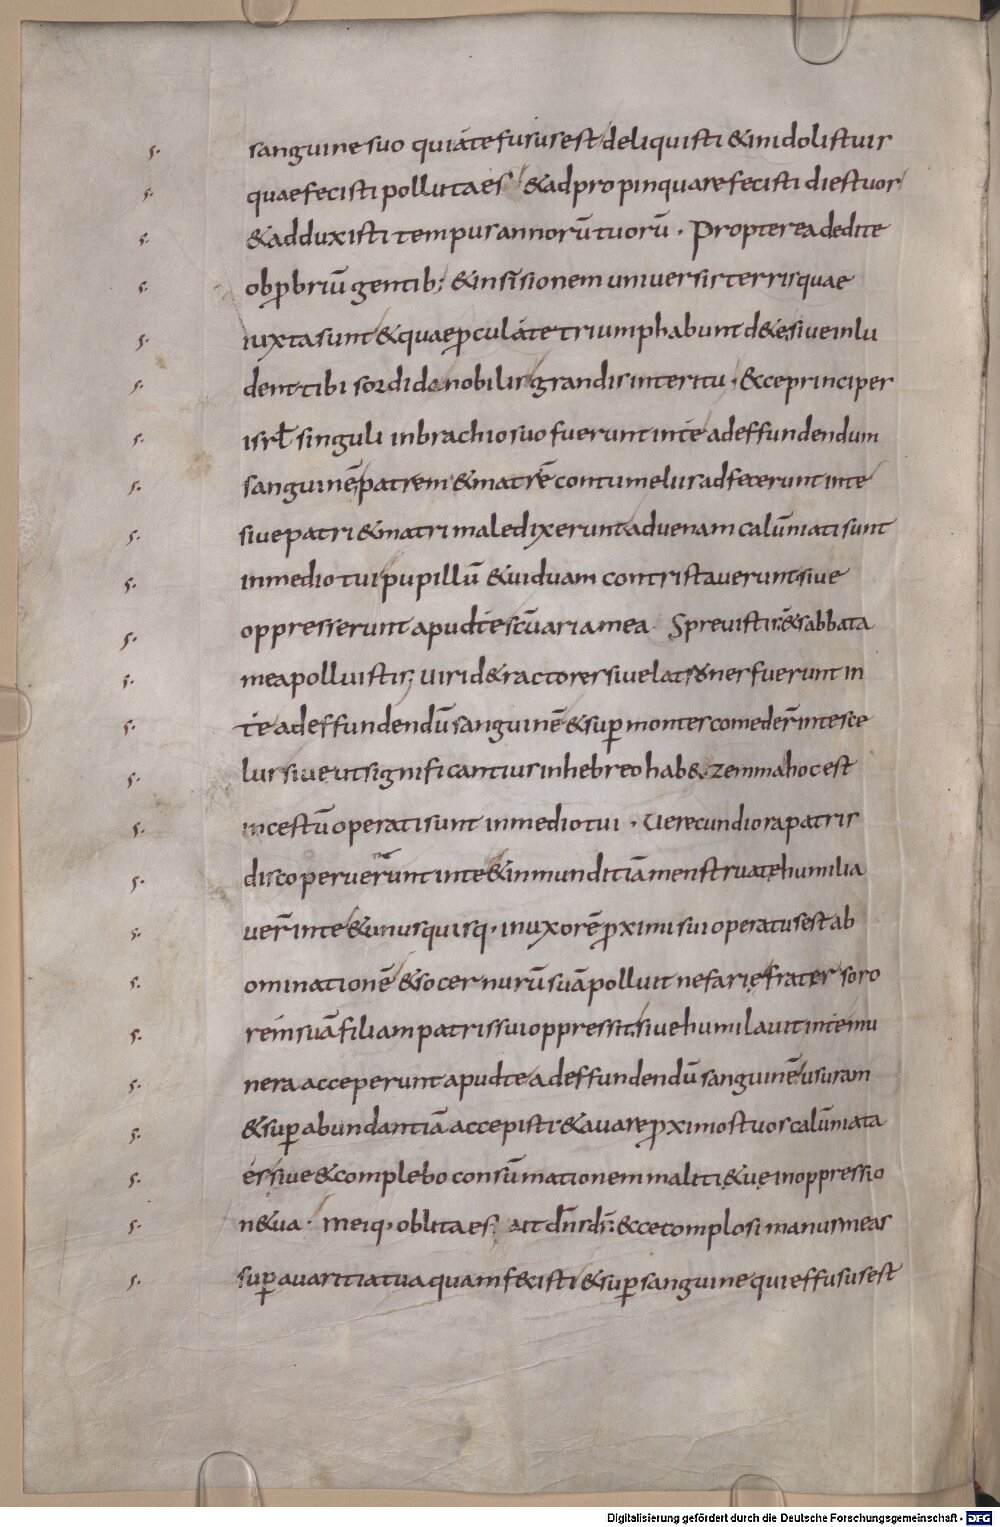 s. sanguine suo qui a te fusus est deliquisti & in idolis tuis
s. quae fecisti polluta es & adpropinquare fecisti dies tuos
s. & adduxisti tempus annorū tuorū · Propterea dedi te
s. obp̄briū gentib; & insīsionem universis terris quae
s. iuxta sunt & quae p̄cul a te triumphabunt de te sive inlu
s. dent tibi sordida nobilis grandis interitu · Ecce principes
s. isrł singuli in brachio suo fuerunt in te ad effundendum
s. sanguinē patrem & matrē contumeliis adfecerunt in te
s. sive patri & matri maledixerunt advenam calūniati sunt
s. in medio tui pupillū & viduam contristaverunt sive
s. oppresserunt apud te scūaria mea Sprevistis & sabbata
s. mea polluistis; viri d&ractores sive latrones fuerunt in
s. te ad effundendū sanguinē & sup montes comeder̄ in te sce
s. lus sive ut significantius in hebreo hab& zemma hoc est
s. incestū operati sunt in medio tui · Verecundiora patris
s. discoperuerunt in te & inmunditiā menstruatę humilia
s. uer̄ in te & unusquisq· in uxorē p̄ximi sui operatus est ab
s. ominationē & socer nurū suā polluit nefarię frater soro
s. rem suā filiam patris sui oppressit sive humilavit in te mu
s. nera acceperunt apud te ad effundendū sanguinē usuram
s. & sup abundantiā accepisti & avare p̄ximos tuos calūniata
s. es sive & complebo consūmationem malitię tuę in oppressio
s. ne tua · meiq· oblita es; ait dn̄s ds̄; Ecce complosi manus meas
s. sup avaritia tua quam fecisti & sup sanguine qui effusus est
Digitalisierung gefördert durch die Deutsche Forschungsgemeinschaft - DFG